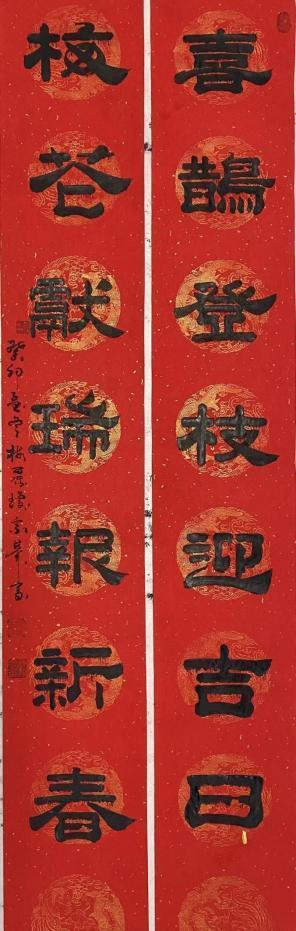 喜鵲登枝迎吉日
梅花獻瑞報新春
癸卯